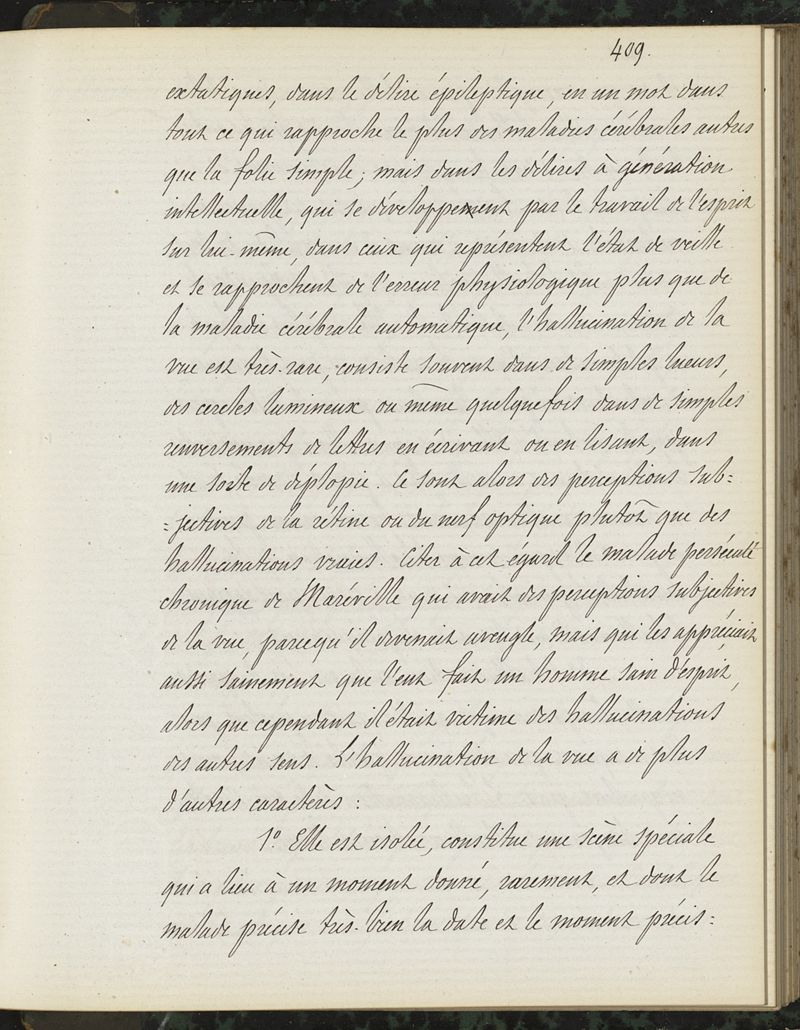 409.
extatiques, dans le délire épileptique, en un mot dans
tout ce qui rapproche le plus des maladies cérébrales autres
que la folie simple; mais dans les délires à génération
intellectuelle, qui se développement par le travail de l'esprit
sur lui-même, dans ceux qui représentent l'état de veille
et se rapprochent de l'erreur physiologique plus que de
la maladie cérébrale automatique, l'hallucination de la
vue est très-rare, consiste souvent dans de simples lueurs,
des cercles lumineux ou même quelquefois dans de simples
renversements de lettres en écrivant ou en lisant, dans
une sorte de diplopie. Ce sont alors des perceptions sub=
=jectives de la rétine ou du nerf optique plutôt que des
hallucinations vraies. Citer à cet égard le malade persécuté
chronique de Maréville qui avait des perceptions subjectives
de la vue, parcequ'il devenait aveugle, mais qui les appréciait
aussi sainement que l'eut fait un homme sain d'esprit,
alors que cependant il était victime des hallucinations
des autres sens. L'hallucination de la vue a de plus
d'autres caractères :
1º. Elle est isolée, constitue une scène spéciale
qui a lieu à un moment donné, rarement, et dont le
malade précise très-bien la date et le moment précis=